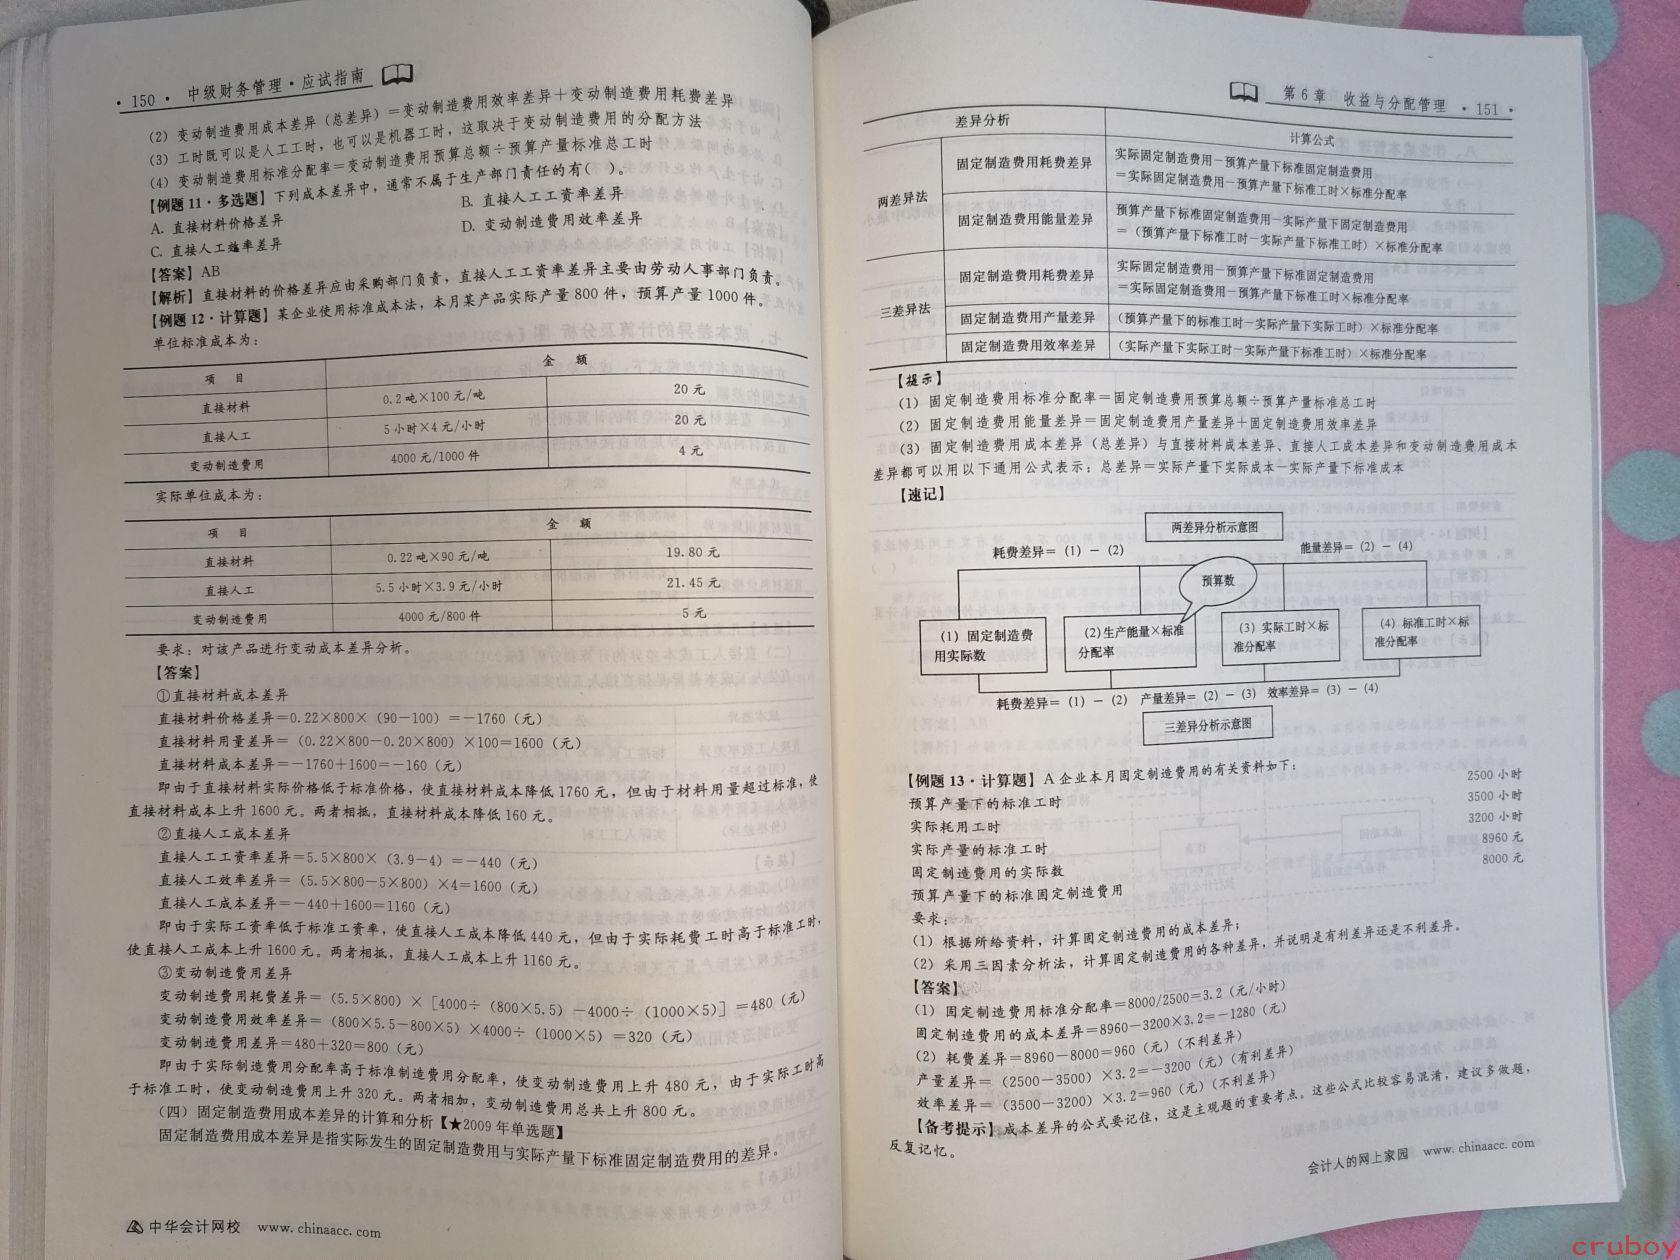 · 150 · 中级财务管理·应试指南
(2) 变动制造费用成本差异（总差异）＝变动制造费用效率差异＋变动制造费用耗费差异
(3) 工时既可以是人工工时，也可以是机器工时，这取决于变动制造费用的分配方法
(4) 变动制造费用标准分配率＝变动制造费用预算总额÷预算产量标准总工时
【例题 11·多选题】下列成本差异中，通常不属于生产部门责任的有(　)。
A. 直接材料价格差异　B. 直接人工工资率差异
C. 直接人工效率差异　D. 变动制造费用效率差异
【答案】AB
【解析】直接材料的价格差异应由采购部门负责，直接人工工资率差异主要由劳动人事部门负责。
【例题 12·计算题】某企业使用标准成本法，本月某产品实际产量 800 件，预算产量 1000 件。
单位标准成本为：
项　目　金　额
直接材料　0.2 吨×100 元/吨　20 元
直接人工　5 小时×4 元/小时　20 元
变动制造费用　4000 元/1000 件　4 元
实际单位成本为：
项　目　金　额
直接材料　0.22 吨×90 元/吨　19.80 元
直接人工　5.5 小时×3.9 元/小时　21.45 元
变动制造费用　4000 元/800 件　5 元
要求：对该产品进行变动成本差异分析。
【答案】
①直接材料成本差异
直接材料价格差异=0.22×800×（90－100）＝－1760（元）
直接材料用量差异=（0.22×800－0.20×800）×100=1600（元）
直接材料成本差异=－1760＋1600=－160（元）
即由于直接材料实际价格低于标准价格，使直接材料成本降低 1760 元，但由于材料用量超过标准，使
直接材料成本上升 1600 元。两者相抵，直接材料成本降低 160 元。
②直接人工成本差异
直接人工工资率差异=5.5×800×（3.9－4）＝－440（元）
直接人工效率差异=（5.5×800－5×800）×4=1600（元）
直接人工成本差异=－440＋1600=1160（元）
即由于实际工资率低于标准工资率，使直接人工成本降低 440 元，但由于实际耗费工时高于标准工时，
使直接人工成本上升 1600 元。两者相抵，直接人工成本上升 1160 元。
③变动制造费用差异
变动制造费用耗费差异＝（5.5×800）×［4000÷（800×5.5）－4000÷（1000×5）］＝480（元）
变动制造费用效率差异＝（800×5.5－800×5）×4000÷（1000×5）＝320（元）
变动制造费用差异=480＋320=800（元）
即由于实际制造费用分配率高于标准制造费用分配率，使变动制造费用上升 480 元，由于实际工时高
于标准工时，使变动制造费用上升 320 元。两者相加，变动制造费用总共上升 800 元。
（四）固定制造费用成本差异的计算和分析【★2009 年单选题】
固定制造费用成本差异是指实际发生的固定制造费用与实际产量下标准固定制造费用的差异。
中华会计网校 www.chinaacc.com
第 6 章　收益与分配管理 · 151 ·
差异分析　计算公式
两差异法　固定制造费用耗费差异　实际固定制造费用－预算产量下标准固定制造费用
＝实际固定制造费用－预算产量下标准工时×标准分配率
固定制造费用能量差异　预算产量下标准固定制造费用－实际产量下固定制造费用
＝（预算产量下标准工时－实际产量下标准工时）×标准分配率
三差异法　固定制造费用耗费差异　实际固定制造费用－预算产量下标准固定制造费用
＝实际固定制造费用－预算产量下标准工时×标准分配率
固定制造费用产量差异　（预算产量下的标准工时－实际产量下实际工时）×标准分配率
固定制造费用效率差异　（实际产量下实际工时－实际产量下标准工时）×标准分配率
【提示】
(1) 固定制造费用标准分配率＝固定制造费用预算总额÷预算产量标准总工时
(2) 固定制造费用能量差异＝固定制造费用产量差异＋固定制造费用效率差异
(3) 固定制造费用成本差异（总差异）与直接材料成本差异、直接人工成本差异和变动制造费用成本
差异都可以用以下通用公式表示：总差异＝实际产量下实际成本－实际产量下标准成本
【速记】
两差异分析示意图
耗费差异＝（1）－（2）　能量差异＝（2）－（4）
预算数
（1）固定制造费用实际数
（2）生产能量×标准分配率
（3）实际工时×标准分配率
（4）标准工时×标准分配率
耗费差异＝（1）－（2）　产量差异＝（2）－（3）　效率差异＝（3）－（4）
三差异分析示意图
【例题 13·计算题】A 企业本月固定制造费用的有关资料如下：
预算产量下的标准工时　2500 小时
实际耗用工时　3500 小时
实际产量的标准工时　3200 小时
固定制造费用的实际数　8960 元
预算产量下的标准固定制造费用　8000 元
要求：
（1）根据所给资料，计算固定制造费用的成本差异；
（2）采用三因素分析法，计算固定制造费用的各种差异，并说明是有利差异还是不利差异。
【答案】
（1）固定制造费用标准分配率=8000/2500=3.2（元/小时）
固定制造费用的成本差异=8960－3200×3.2=－1280（元）
（2）耗费差异=8960－8000=960（元）（不利差异）
产量差异=（2500－3500）×3.2=－3200（元）（有利差异）
效率差异=（3500－3200）×3.2=960（元）（不利差异）
【备考提示】成本差异的公式要记住，这是主观题的重要考点。这些公式比较容易混淆，建议多做题，
反复记忆。
会计人的网上家园 www.chinaacc.com
cruboy